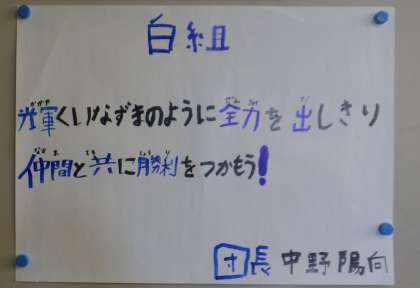 白組
輝くいなずまのように全力を出しきり
仲間と共に勝利をつかもう!
団長 中野陽向